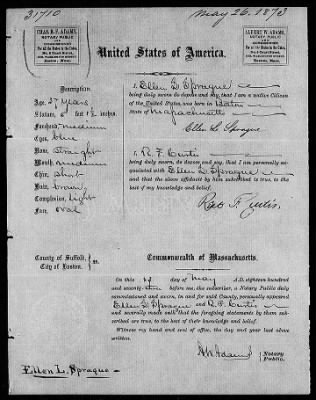 31710
May 26. 1873
CHAS. R. F. ADAMS,
NOTARY PUBLIC
For all the States in the Union,
Boston, Mass.
ALBERT W. ADAMS,
NOTARY PUBLIC
For all the States in the Union,
Boston, Mass.
United States of America.
Description.
Age, 27 years
Stature, 5 feet 1½ inches.
Forehead, medium
Eyes, blue
Nose, straight
Mouth, medium
Chin, short
Hair, brown
Complexion, light
Face, oval
I, Ellen L. Sprague
being duly sworn do depose and say that I am a native Citizen
of the United States, was born in Boston
State of Massachusetts
Ellen L. Sprague
I, R. F. Curtis
being duly sworn, do depose and say, that I am personally
acquainted with Ellen L. Sprague
and that the above affidavit by him subscribed is true, to the
best of my knowledge and belief.
R. F. Curtis.
County of Suffolk,
City of Boston.
ss.
Commonwealth of Massachusetts.
On this day of May A.D. eighteen hundred
and seventy- before me, the subscriber, a Notary Public duly
commissioned and sworn, in and for said County, personally appeared
Ellen L. Sprague and R. F. Curtis
and severally made oath that the foregoing statements by them sub-
scribed are true, to the best of their knowledge and belief.
Witness my hand and seal of office, the day and year last above
written.
A W Adams
Notary
Public.
Ellen L. Sprague